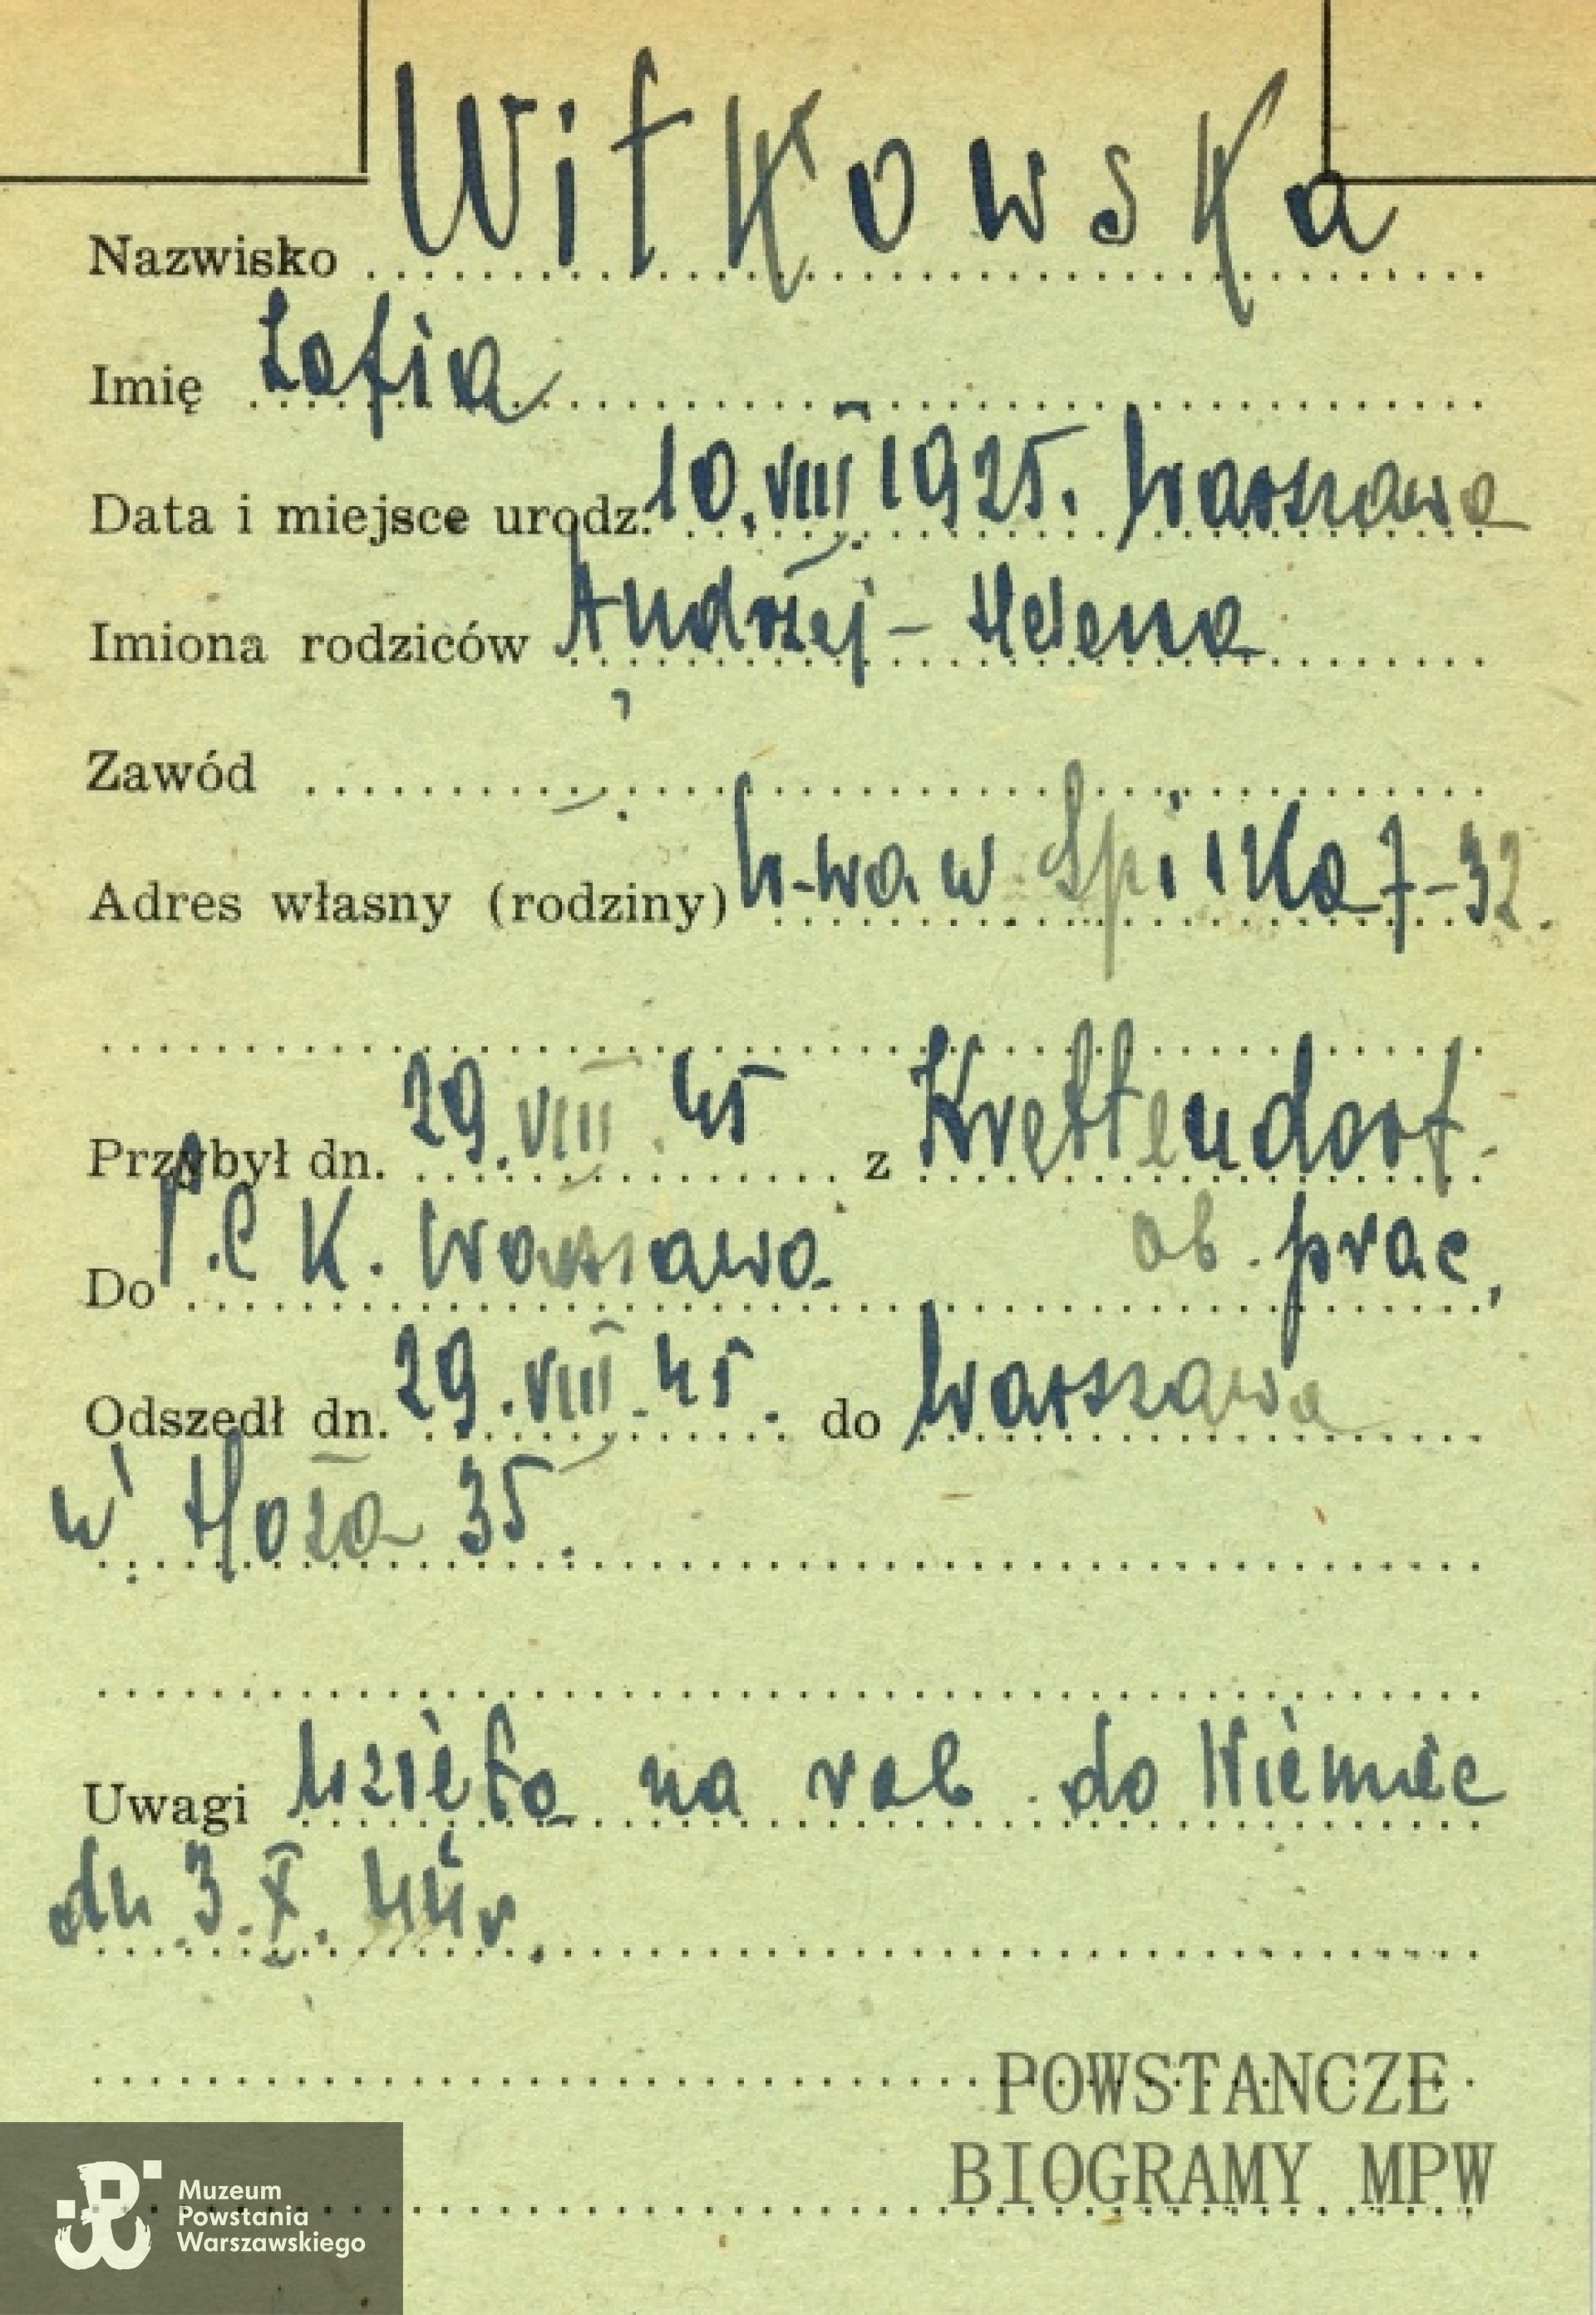 Nazwisko Witkowska
Imię Zofia
Data i miejsce urodz. 10.VIII 1925. Warszawa
Imiona rodziców Andrzej - Helena
Zawód
Adres własny (rodziny) W-wa 7-32.
Przybył dn. 29.VIII.45 z Krettendorf
ob. prac,
Do P.C K. Warszawa
Odszedł dn. 29.VIII.45. do Warszawa
Hoża 35.
Uwagi Wzięta na rob do Niemiec
dn 3.X.44 r.
POWSTANCZE
BIOGRAMY MPW
Muzeum
Powstania
Warszawskiego